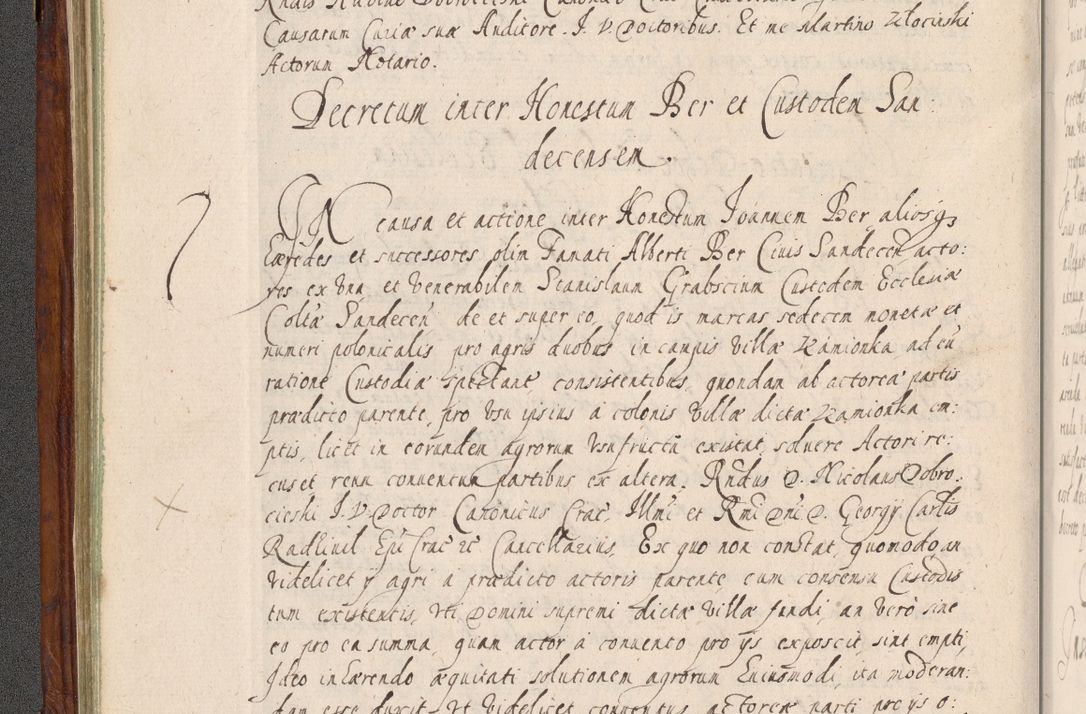 Causarum Curiæ suæ Auditore. I. V. Doctoribus. Et me Martino Złocinski
Actorum Notario.
Decretum inter Honestum Ber et Custodem San:
decensem.
IN causa et actione inter Honestum Ioannem Ber aliosq3
Hæredes et successores olim Famati Alberti Ber Ciuis Sandecen̄ acto:
res ex vna et Venerabilem Stanislaum Grabscium Custodem Ecclesiæ
Coltæ Sandecen̄ de et super eo, quod is marcas sedecem monetæ et
numeri polonicalis pro agris duobus in campis villæ Kamionka ad eū
ratione Custodiæ spectant̄ consistentibus, quondam ab actoreæ partis
prædicto parente, pro vsu ipsius á colonis villæ dictæ Kamionka em:
ptis, licet in eorundem agrorum vsufructū existat, soluere Actori re:
cuset reum conuentum partibus ex altera. Rn̄dus D. Nicolaus Dobro:
cieski I. V. Doctor Canonicus Crac̄. Illmi et Rmi Dn̄i D. Georgÿ Carlis
Radiiuil Epī Crac̄ &c Cancellarius. Ex quo non constat, quomodo an
videlicet ÿ agri á prædicto actoris parente, cum consensu Custodis
tum existentis, vti Domini supremi dictæ villæ fundi, an veró sine
eo pro ea summa, quam actor á conuento pro ÿs exposcit, sint empti,
Ideo inhærendo æquitati solutionem agrorum huiusmodi, ita moderan:
dam esse duxit. Vt videlicet conuentus actoreæ parti pro ÿs o: